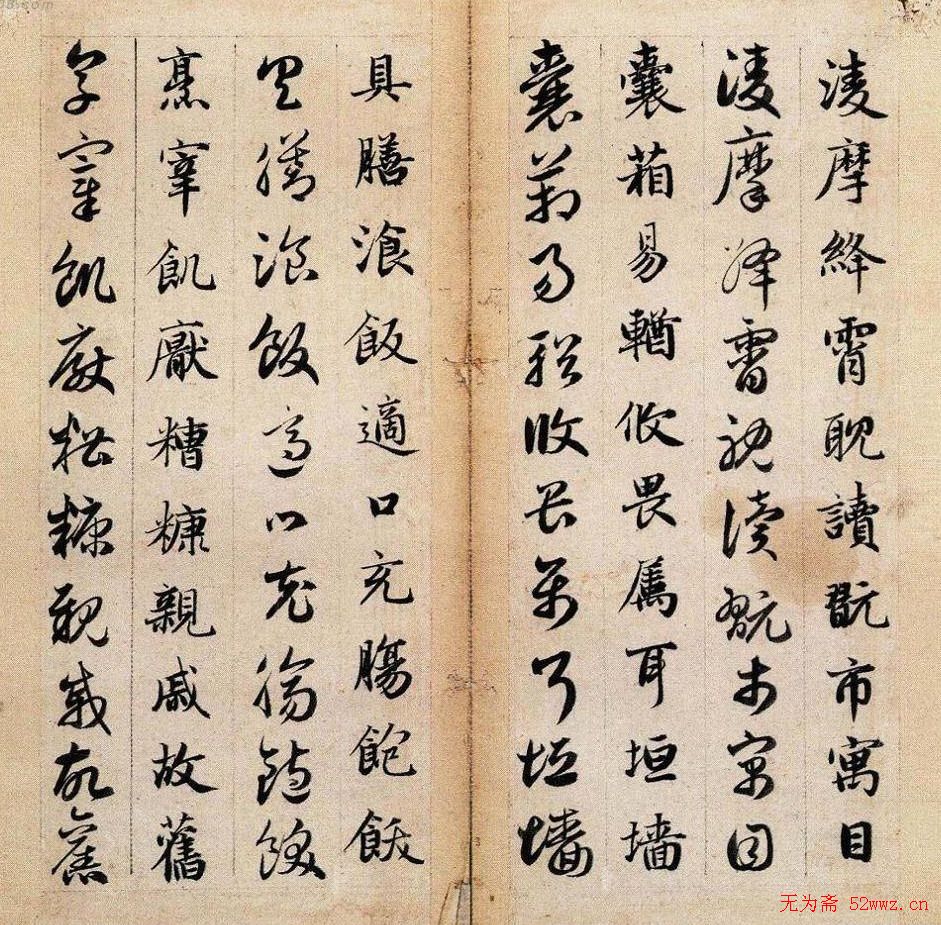 淩摩絳霄耽讀翫市寓目
淩摩絳霄耽讀翫市寓目
囊箱易輶攸畏屬耳垣墻
囊箱易輶攸畏屬耳垣墻
具膳湌飯適口充腸飽飫
具膳湌飯適口充腸飽飫
烹宰飢厭糟糠親戚故舊
烹宰飢厭糟糠親戚故舊
无为斋 52wwz.cn